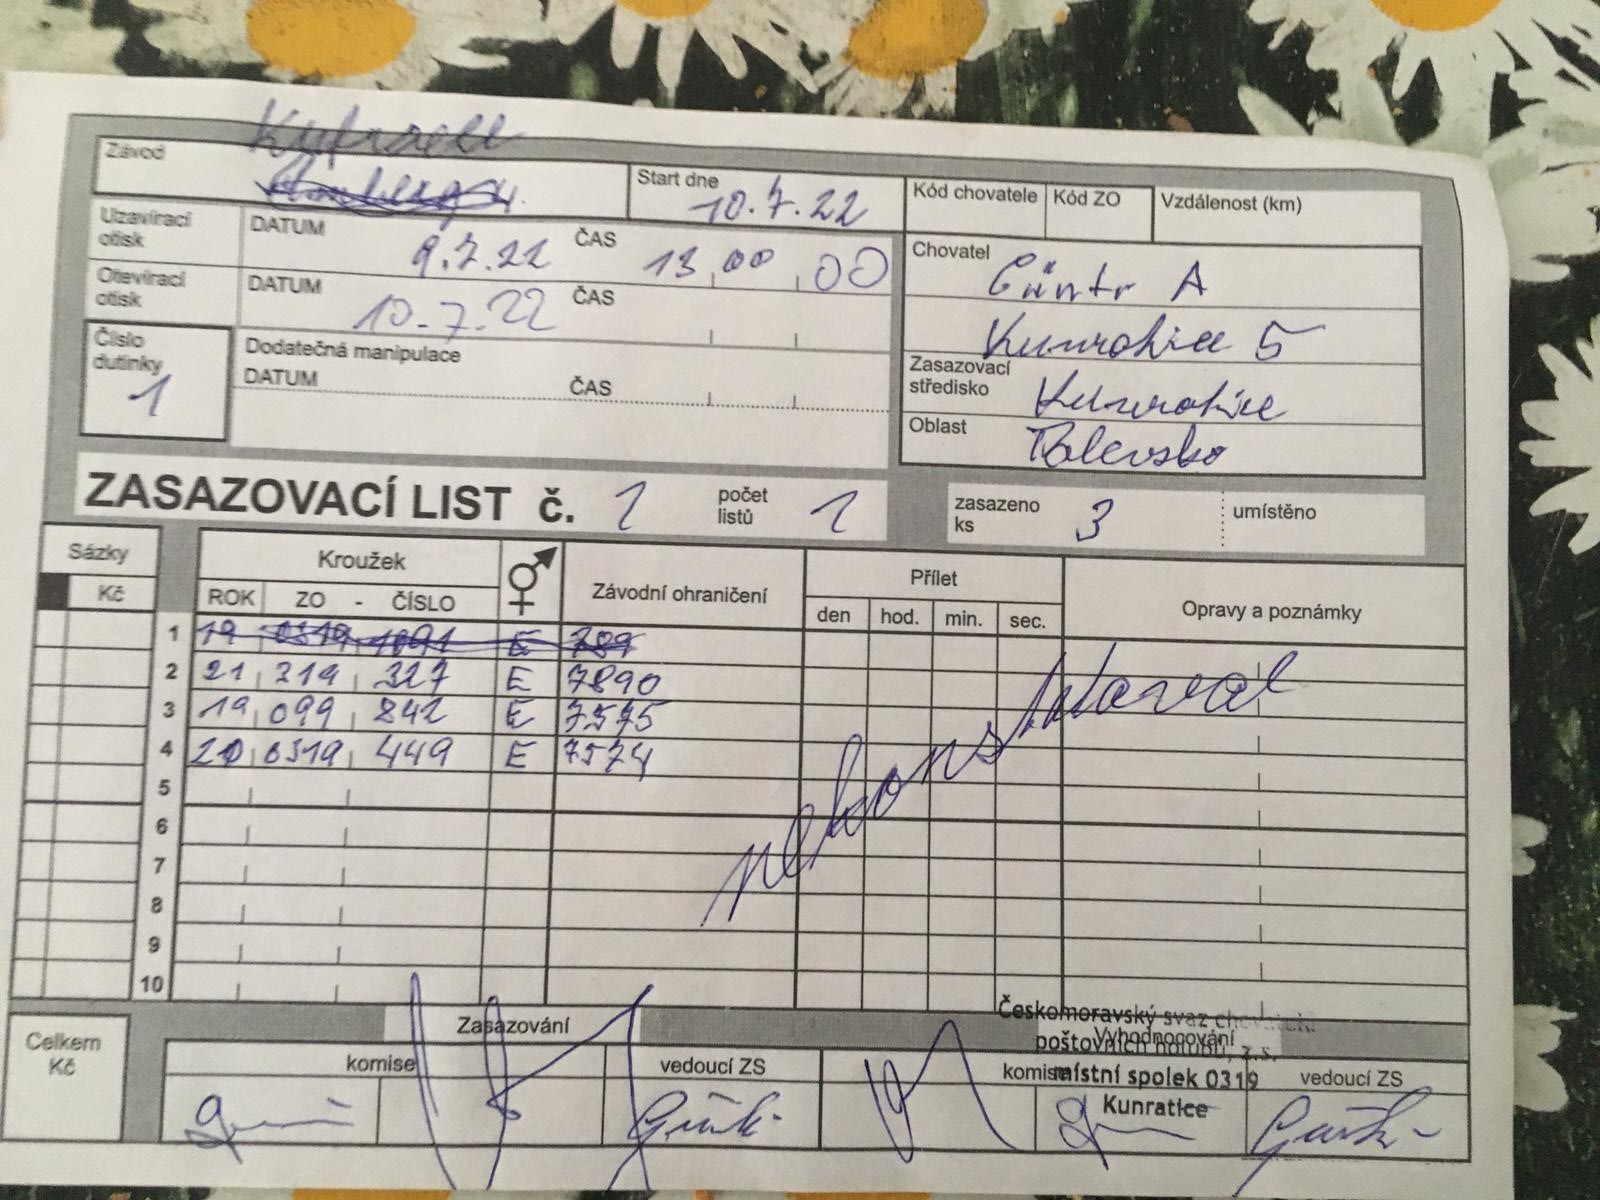 Závod
Start dne 10.7.22
Kód chovatele Kód ZO Vzdálenost (km)
Uzavírací otisk DATUM 9.7.22 ČAS 13 00 00
Otevírací otisk DATUM 10.7.22 ČAS
Číslo dutinky 1
Dodatečná manipulace
DATUM ČAS
Chovatel Güntr A
Kunratice 5
Zasazovací středisko Kunratice
Oblast
ZASAZOVACÍ LIST č. 1 počet listů 1
zasazeno ks 3 umístěno
Sázky
Kč
Kroužek
Závodní ohraničení
Přílet
Opravy a poznámky
ROK ZO - ČÍSLO
den hod. min. sec.
1 19 0319 1091 E 789
2 21 319 327 E 7890
3 19 099 842 E 7575
4 20 0319 449 E 7574
5
6
7
8
9
10
nekonstatoval
Celkem Kč
Zasazování
Vyhodnocování
komise vedoucí ZS
komise vedoucí ZS
Českomoravský svaz chovatelů
poštovních holubů, z.s.
místní spolek 0319
Kunratice